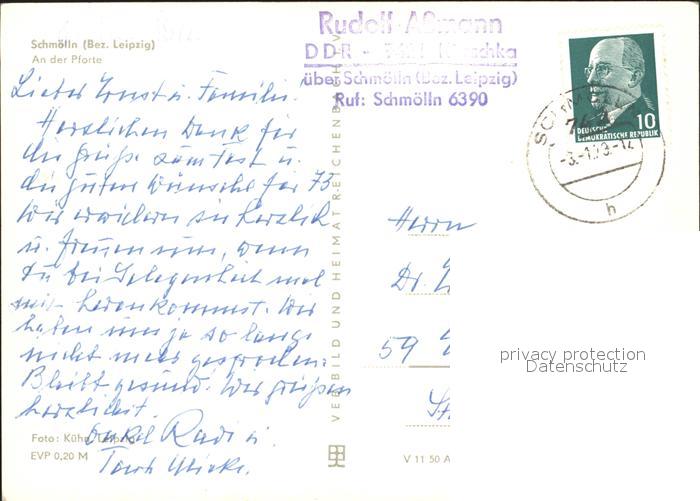 Schmölln (Bez. Leipzig)
An der Pforte
Rudolf Aßmann
DDR -
über Schmölln (Bez. Leipzig)
Ruf: Schmölln 6390
DEUTSCHE
DEMOKRATISCHE REPUBLIK
10
-3.-1.73.-14
h
Lieber Ernst u. Familie.
Herzlichen Dank für
die Grüße zum Fest u.
die guten Wünsche für 73
Wir erwidern sie herzlich
u. freuen uns, wenn
Du bei Gelegenheit mal
herankommst. Wir
haben uns ja so lange
nicht mehr gesprochen.
Bleibt gesund. Wir grüßen
herzlichst.
Onkel Rudi u.
Foto: Kühn, Leipzig
EVP 0,20 M
VEB BILD UND HEIMAT REICHENBACH
Herrn
Dr.
59
V 11 50 A
privacy protection
Datenschutz